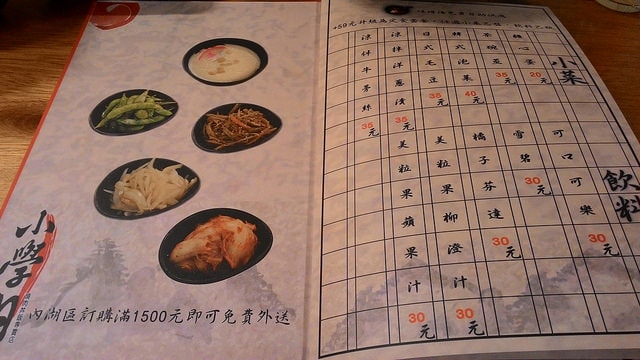 小菜
糖心蛋 20元
茶碗蒸 35元
韓式泡菜 40元
日式毛豆 35元
涼拌洋蔥漬 35元
涼拌牛蒡絲 35元
飲料
可口可樂 30元
雪碧 30元
橘子芬達 30元
美粒果柳澄汁 30元
美粒果蘋果汁 30元
小學
內湖區訂購滿1500元即可免費外送